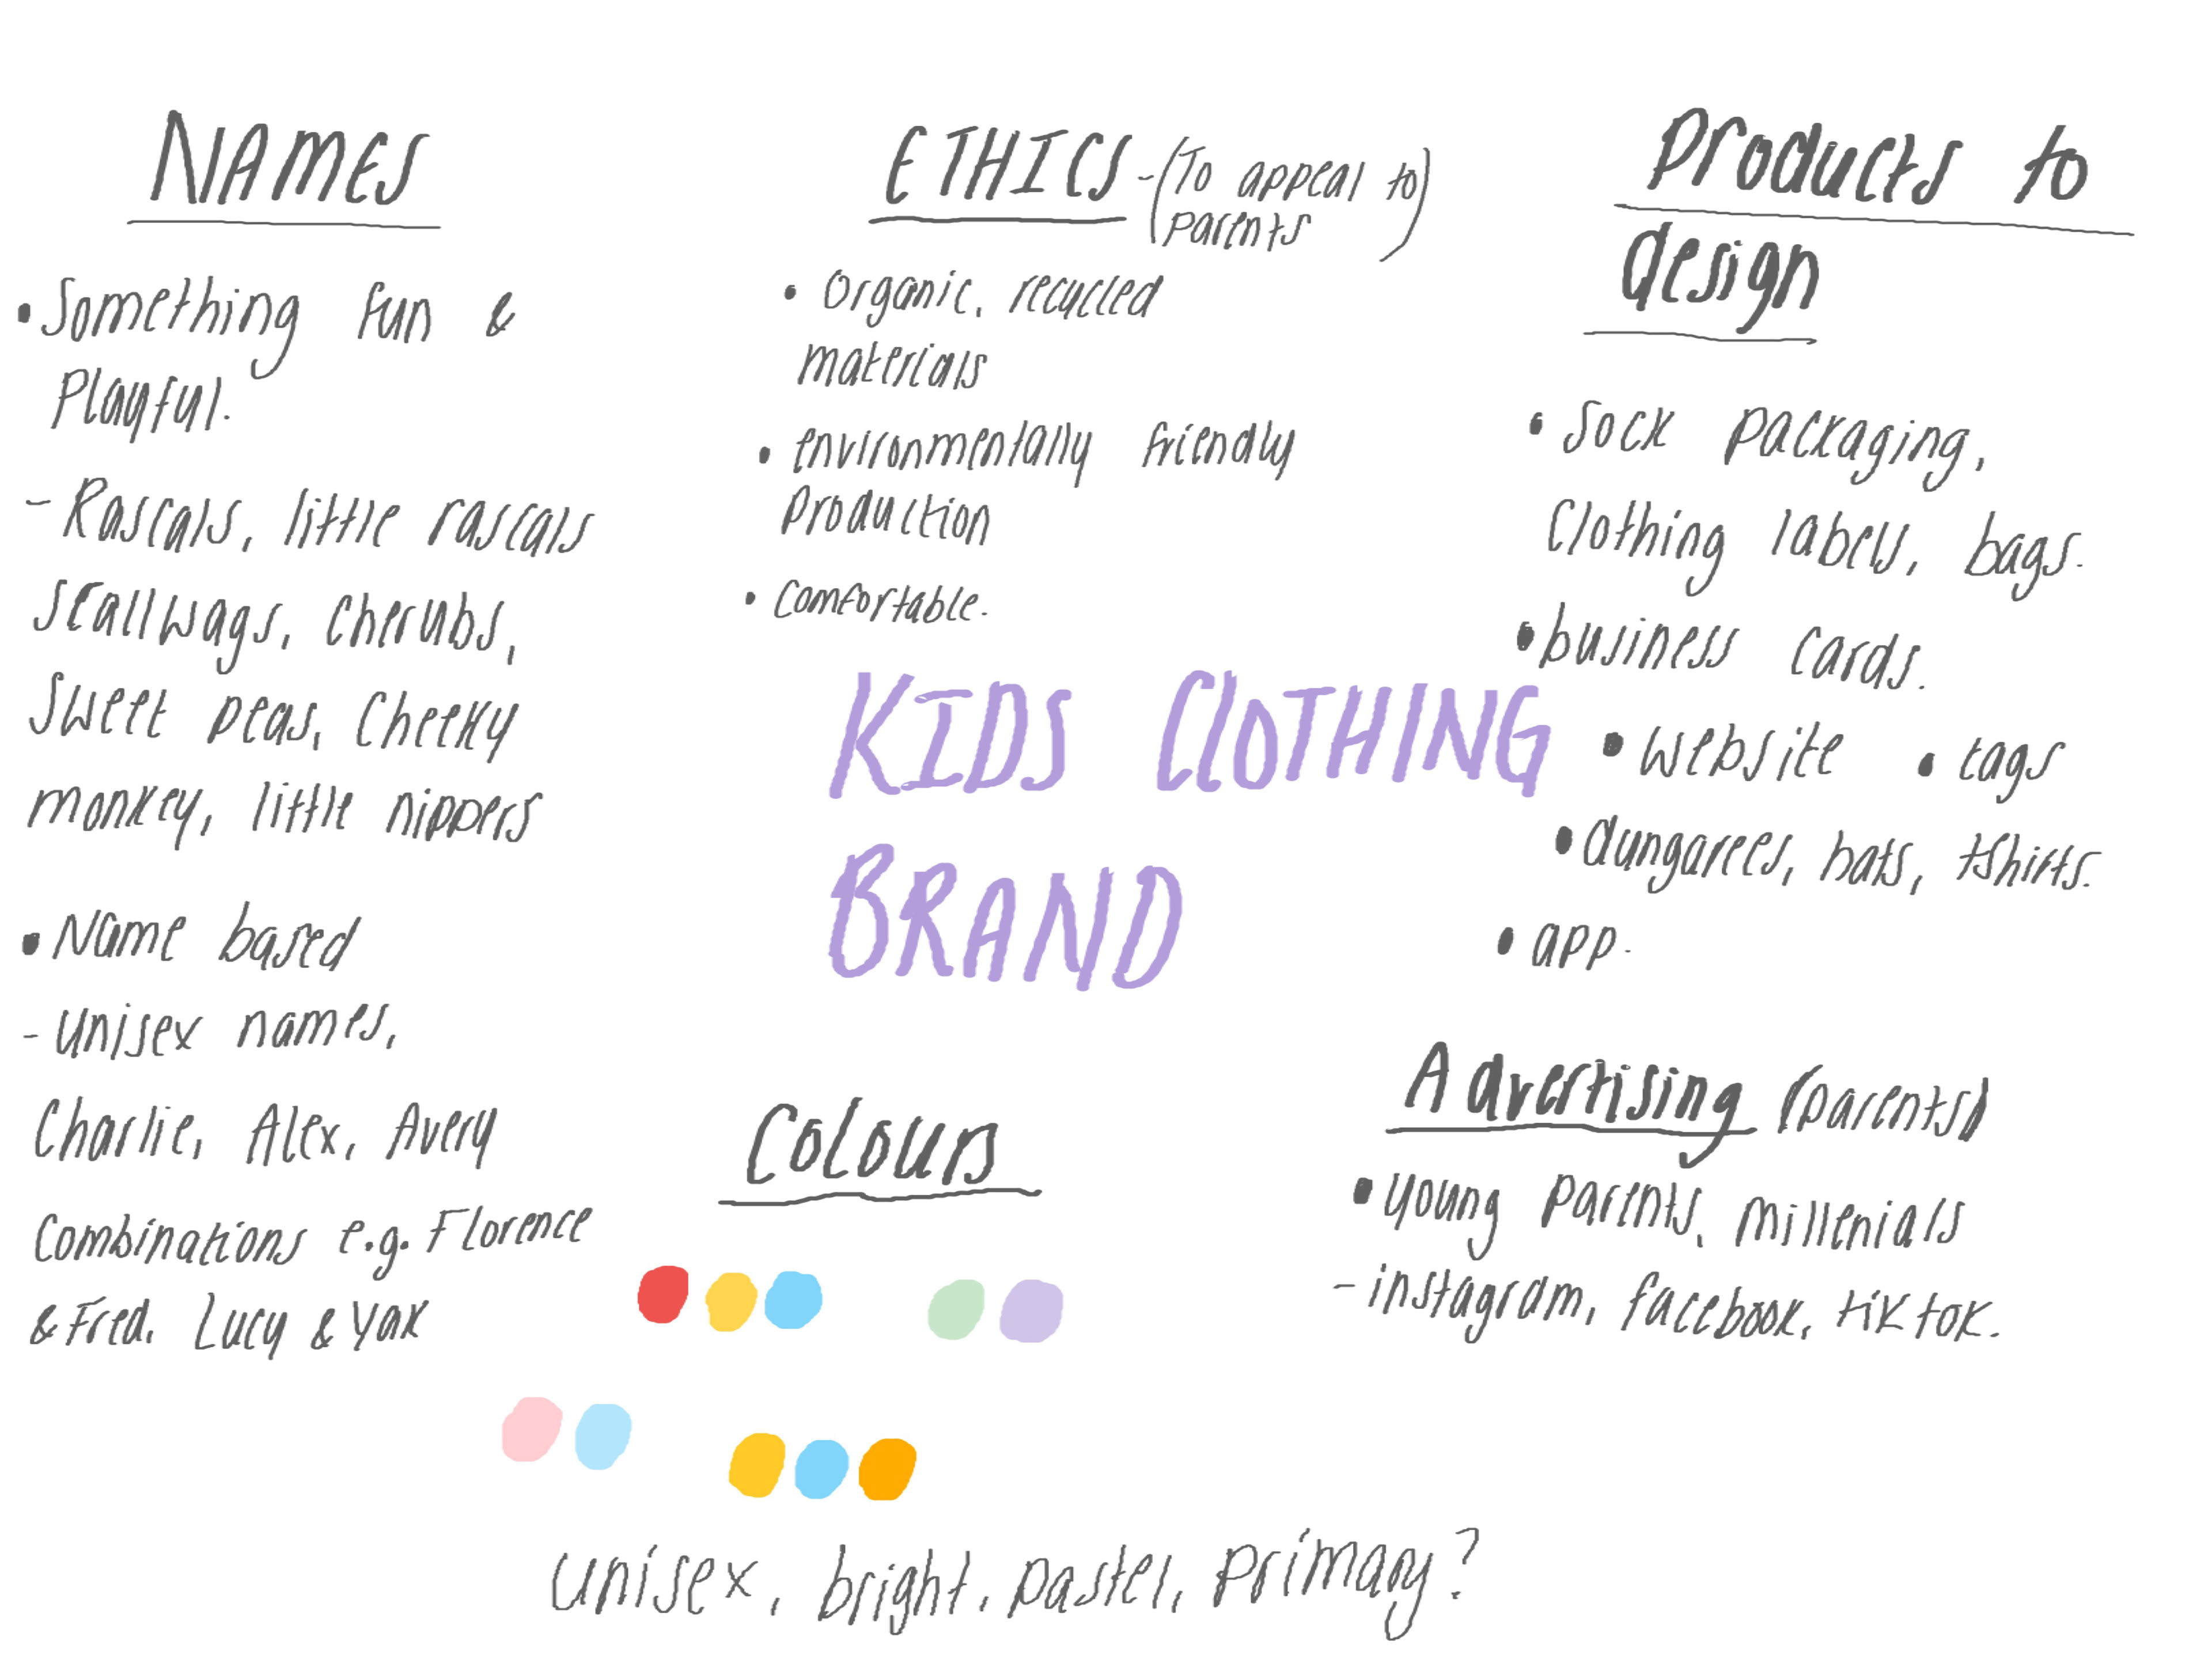 NAMES
• Something fun &
Playful.
- Rascals, little rascals
Scallwags, Cherubs,
Sweet peas, Cheeky
monkey, little nippers
• Name based
- Unisex names,
Charlie, Alex, Avery
Combinations e.g. Florence
& Fred, Lucy & Yak
ETHICS - (To appeal to
parents)
• Organic, recycled
materials
• environmentally friendly
production
• comfortable.
KIDS CLOTHING
BRAND
Colours
unisex, bright, pastel, primary?
Products to
design
• Sock packaging,
Clothing labels, bags.
• business cards.
• website • tags
• dungarees, hats, tshirts.
• app.
Advertising (parents)
• young parents, millenials
- instagram, facebook, tiktok.